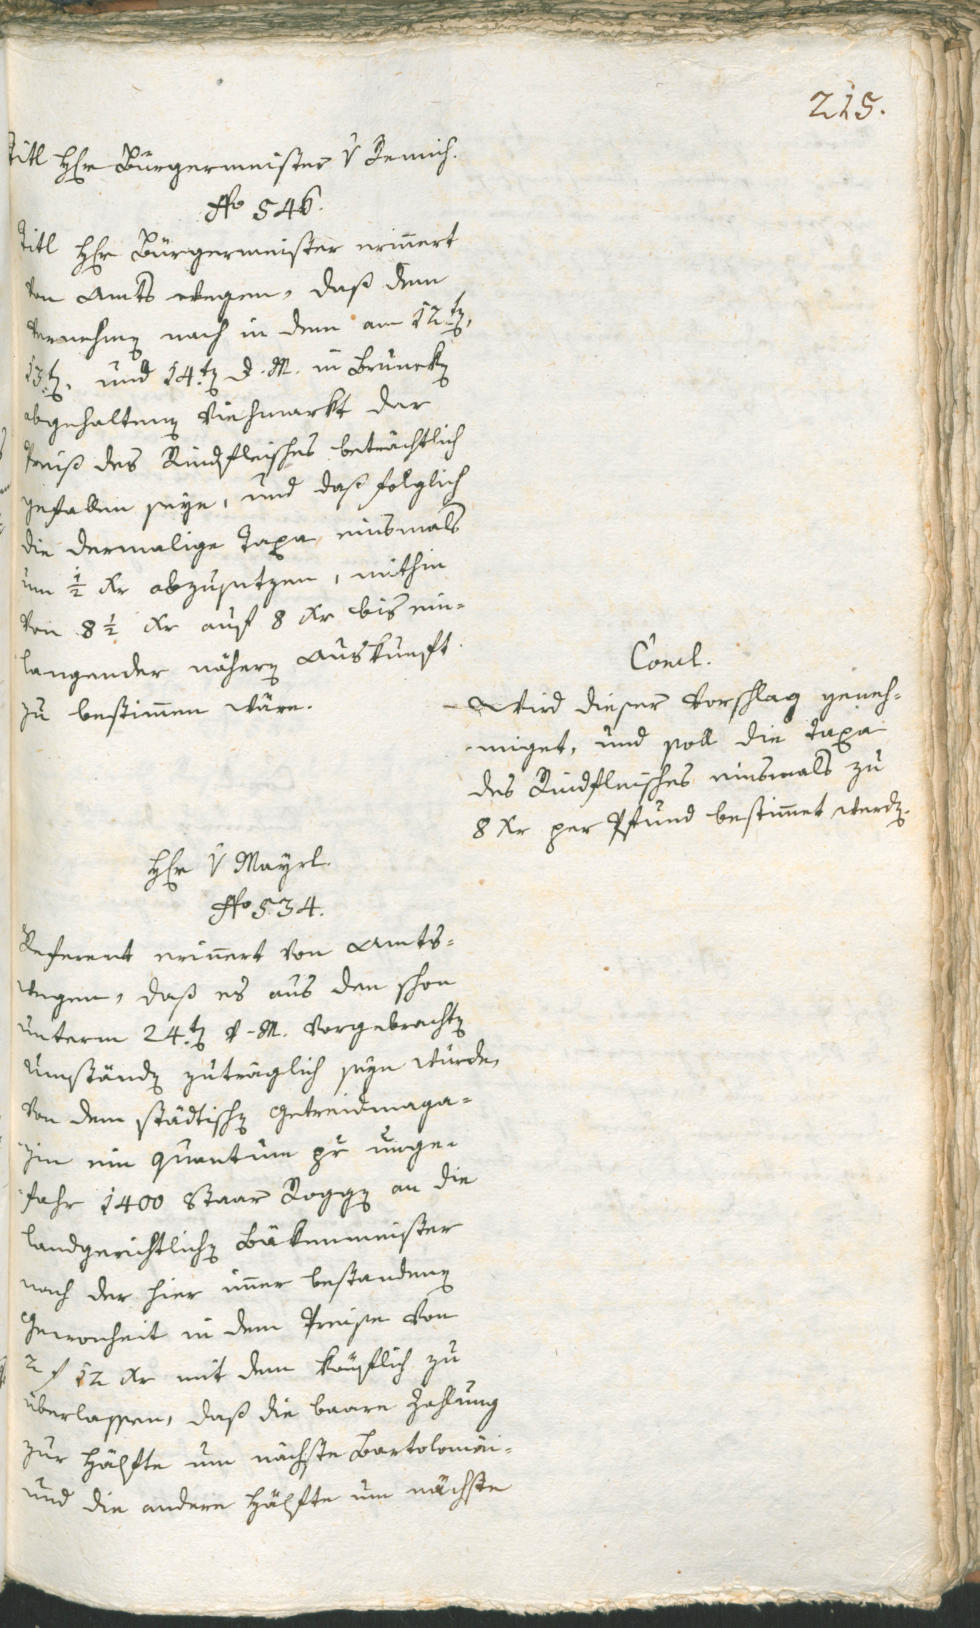 215.
Titl H[er]r Bürgermeister v Remich.
No 546.
Titl Hr Bürgermeister erinnert
von Amts wegen, daß dem
Vernehmen nach in dem am 12ten,
13ten, und 14ten d. M. in Bruneken
abgehaltenen Viehmarkt der
Preiß des Rindfleisches beträchtlich
gefallen seye, und daß folglich
die dermalige Taxa einsmals
um ½ Xr abzusetzen, mithin
von 8½ Xr auf 8 Xr bis ein-
langender nähern Auskunft
zu bestimmen wäre.
Concl.
Wird dieser Vorschlag geneh-
miget, und soll die Taxa
des Rindfleisches einsmals zu
8 Xr per Pfund bestimmet werden.
Hr v Mayrl.
No 534.
Referent erinnert von Amts-
wegen, daß es aus den schon
unterm 24ten v. M. vorgebrachten
Umständen zuträglich seyn würde,
von dem städtischen Getreidmaga-
zin ein Quantum pr unge-
fahr 1400 Staar Roggen an die
landgerichtlichen Bäkenmeister
nach der hier immer bestandenen
Gewonheit in dem Preise von
2 f 12 Xr mit dem käuflich zu
überlassen, daß die baare Zahlung
zur Hälfte um nächste Bartolomäi-
und die andere Hälfte um nächste